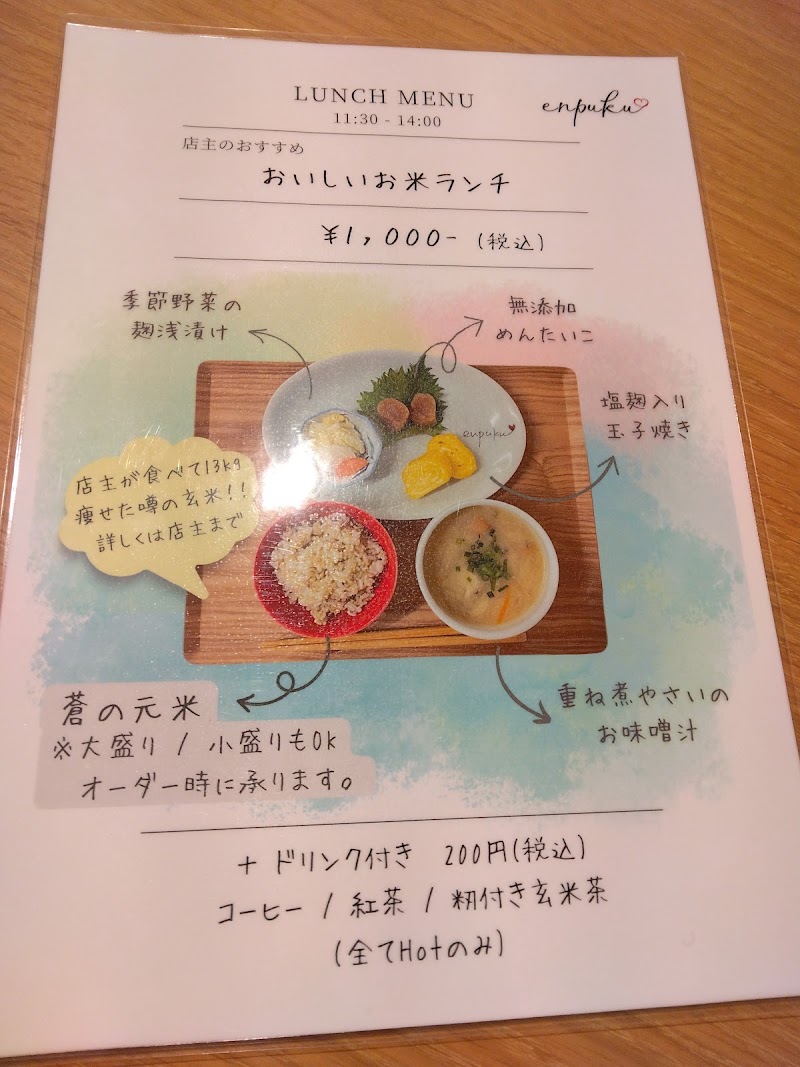 LUNCH MENU
11:30 - 14:00
enpuku
店主のおすすめ
おいしいお米ランチ
¥1,000- (税込)
季節野菜の
麹浅漬け
無添加
めんたいこ
塩麹入り
玉子焼き
enpuku
店主が食べて13kg
痩せた噂の玄米!!
詳しくは店主まで
蒼の元米
※大盛り / 小盛りもOK
オーダー時に承ります。
重ね煮やさいの
お味噌汁
+ ドリンク付き 200円(税込)
コーヒー / 紅茶 / 籾付き玄米茶
(全てHotのみ)